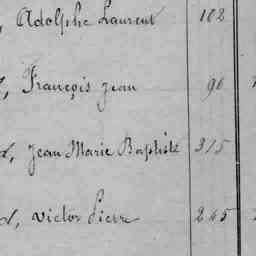 , Adolphe Laurent 182
, François Jean 96
d, Jean Marie Baptiste 315
d, Victor Pierre 245